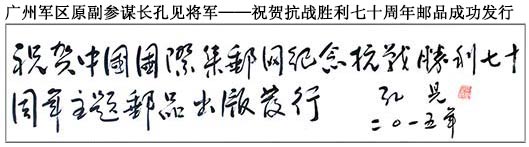 广州军区原副参谋长孔见将军——祝贺抗战胜利七十周年邮品成功发行
祝贺中國國際集郵网纪念抗戰勝利七十
周年主题郵品出版发行 孔見
二〇一五年